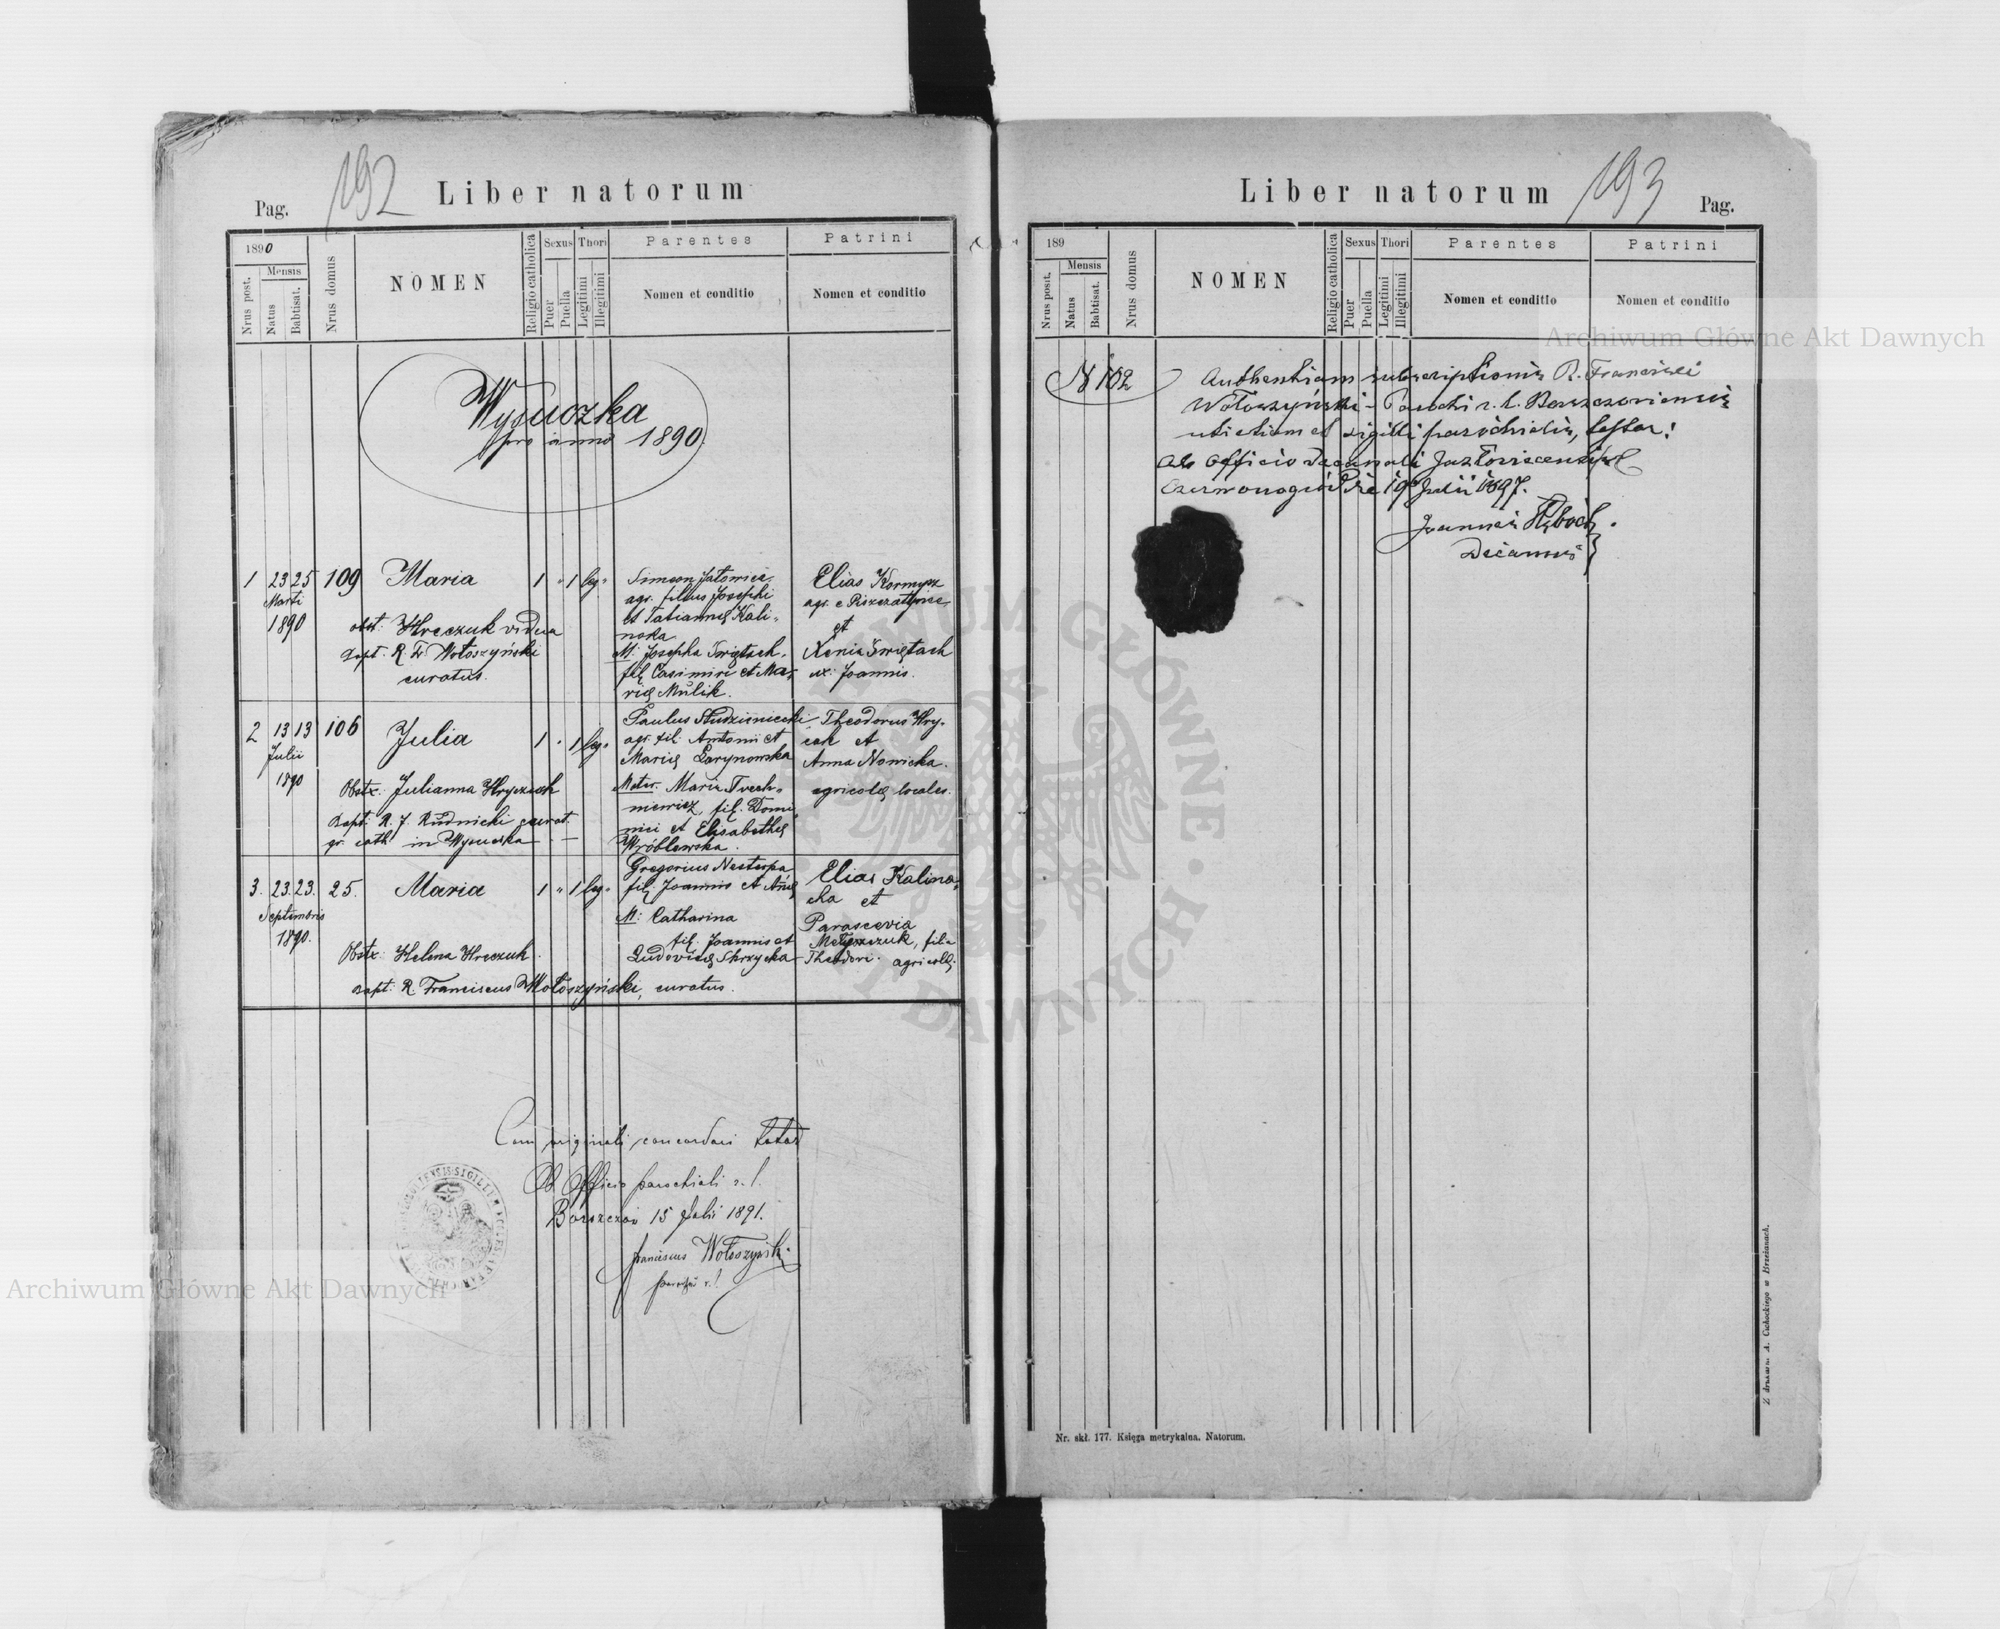 192
Liber natorum
Pag.
1890
Nrus post.
Mensis
Natus
Babtisat.
Nrus domus
NOMEN
Religio catholica
Sexus
Puer
Puella
Thori
Legitimi
Illegitimi
Parentes
Nomen et conditio
Patrini
Nomen et conditio
Wysuczka
pro anno 1890.
1 23 25 109 Maria 1 " 1 leg.
Marti
1890
obst: Hreczuk vidua
Bapt: R. Fr. Wołoszyński
curatus.
Simeon
agr. filius Josephi
et Tatiannę Kali-
noka
M: Josepha Świętach,
fil. Casimiri et Ma-
rię Mulik.
Elias Kormysz
agr. e Piszczatyńce
et
Xenia Świętach
ux: Joannis.
2 13 13 106 Julia 1 " 1 leg.
Julii
1890
Obstx: Julianna Hryczuk
Bapt: R. J. Rudnicki curat.
gr. cath. in Wysuczka
Paulus Studzieniecki
agr. fil. Antonii et
Marię Larynowska
Mater. Maria Trech-
niewicz, fil. Domi-
nici et Elisabethę
Wróblewska.
Theodorus Hry-
cak et
Anna Nowicka.
agricolę locales.
3. 23. 23. 25. Maria 1 " 1 leg.
Septembris
1890.
Obstx: Helena Hreczuk.
Bapt: R. Franciscus Wołoszyński, curatus.
Gregorius Nesterpa
fil. Joannis et Annę
M: Catharina
fil. Joannis et
Ludovicę Skrzycka
Elias Kalino-
cka et
Parascevia
fil.
Theodori. agricolę.
Cum originali concordari testor
Ab Officio parochiali r. l.
Borszczów 15 Julii 1891.
Franciscus Wołoszyński
parochus r. l.
193
Liber natorum
Pag.
189
Nrus posit.
Mensis
Natus
Babtisat.
Nrus domus
NOMEN
Religio catholica
Sexus
Puer
Puella
Thori
Legitimi
Illegitimi
Parentes
Nomen et conditio
Patrini
Nomen et conditio
N 102
Authentiam subscriptionis R. Francisci
Wołoszyński - Parochi r. l. Borszczoviensis
uti etiam et sigilli parochialis, testor!
Ab Officio Decanali Jazłoviecensi r. l.
Czerwonogród die 19 Julii 1897.
Joannes
Decanus
Nr. skł. 177. Księga metrykalna. Natorum.
Z drukarni A. Cichockiego w Brzeżanach.
Archiwum Główne Akt Dawnych
Archiwum Główne Akt Dawnych
ARCHIWUM GŁÓWNE AKT DAWNYCH